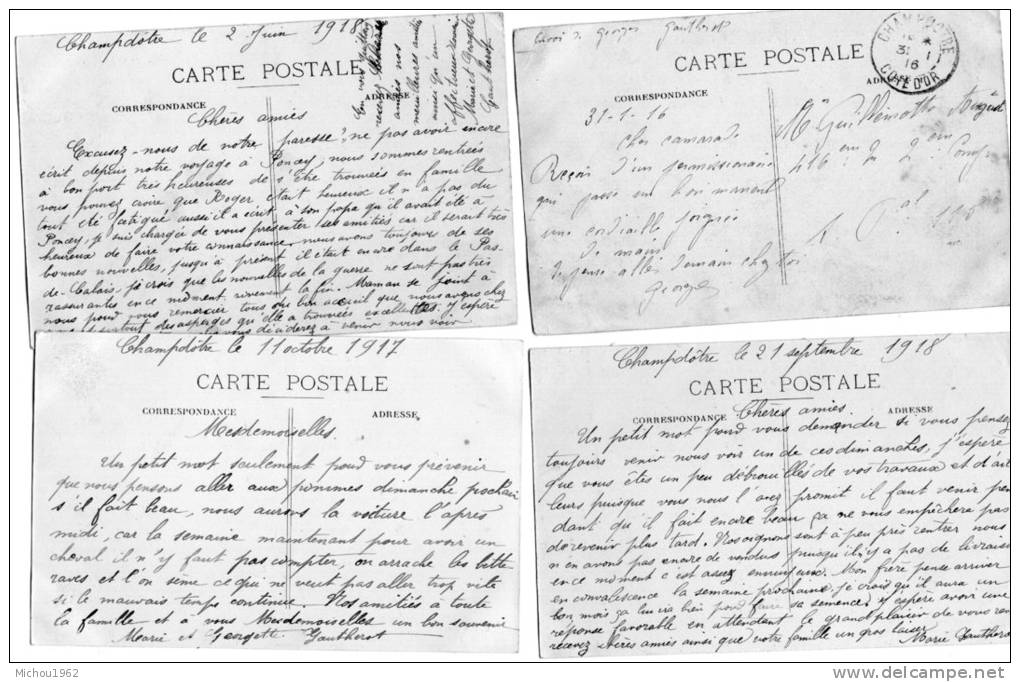 Champdôtre le 2 Juin 1918
CARTE POSTALE
CORRESPONDANCE
ADRESSE
Chères amies
Excusez-nous de notre paresse, ne pas avoir encore
écrit depuis notre voyage à Poncey, nous sommes rentrées
à bon port très heureuses de s'être trouvées en famille
vous pouvez croire que Roger était heureux et n'a pas du
tout été fatigué aussi il a écrit à son papa qu'il avait été à
Poncey, je suis chargée de vous présenter ses amitiés car il serait très
heureux de faire votre connaissance, nous avons toujours de ses
bonnes nouvelles, jusqu'à présent il était encore dans le Pas-
de-Calais, je crois que les nouvelles de la guerre ne sont pas très
rassurantes en ce moment, vivement la fin. Maman se joint à
nous pour vous remercier tous du bon accueil que nous avons chez
surtout des asperges qu'elle a trouvées excellentes. J'espère
vous déciderez à venir nous voir
recevez chères
amies nos
meilleures
Marie et Georgette
Gautherot
Envoi de Georges Gautherot
CHAMPDOTRE
31 - 1
16
COTE D'OR
CARTE POSTALE
CORRESPONDANCE
31-1-16
Cher camarade
Reçois d'un permissionnaire
qui passe un bon moment
une cordiale poignée
de main
Je pense aller demain chez toi
Georges
Mr Guillemot August
416
Champdôtre le 11 octobre 1917
CARTE POSTALE
CORRESPONDANCE
ADRESSE
Mesdemoiselles.
Un petit mot seulement pour vous prévenir
que nous pensons aller aux pommes dimanche prochain
s'il fait beau, nous aurons la voiture l'après
midi, car la semaine maintenant pour avoir un
cheval il n'y faut pas compter, on arrache les bette
raves et l'on sème ce qui ne veut pas aller trop vite
si le mauvais temps continue. Nos amitiés à toute
la famille et à vous Mesdemoiselles un bon souvenir
Marie et Georgette Gautherot
Champdôtre le 21 septembre 1918
CARTE POSTALE
CORRESPONDANCE
ADRESSE
Chères amies.
Un petit mot pour vous demander si vous pensez
toujours venir nous voir un de ces dimanches, j'espère
que vous êtes un peu débrouillés de vos travaux et d'ail
leurs puisque vous nous l'avez promit il faut venir pen
dant qu'il fait encore beau, ça ne vous empêchera pas
de revenir plus tard. Nos oignons sont à peu près rentrer nous
n'en avons pas encore de vendus puisqu'il y a pas de livraison
en ce moment c'est assez ennuyeux. Mon frère pense arriver
en convalescence la semaine prochaine, je crois qu'il aura un
bon mois ça lui ira bien pour faire sa semence. J'espère avoir une
réponse favorable en attendant le grand plaisir de vous
recevez chères amies ainsi que votre famille un gros baiser
Marie Gautherot
Michou1962
delcampe.net